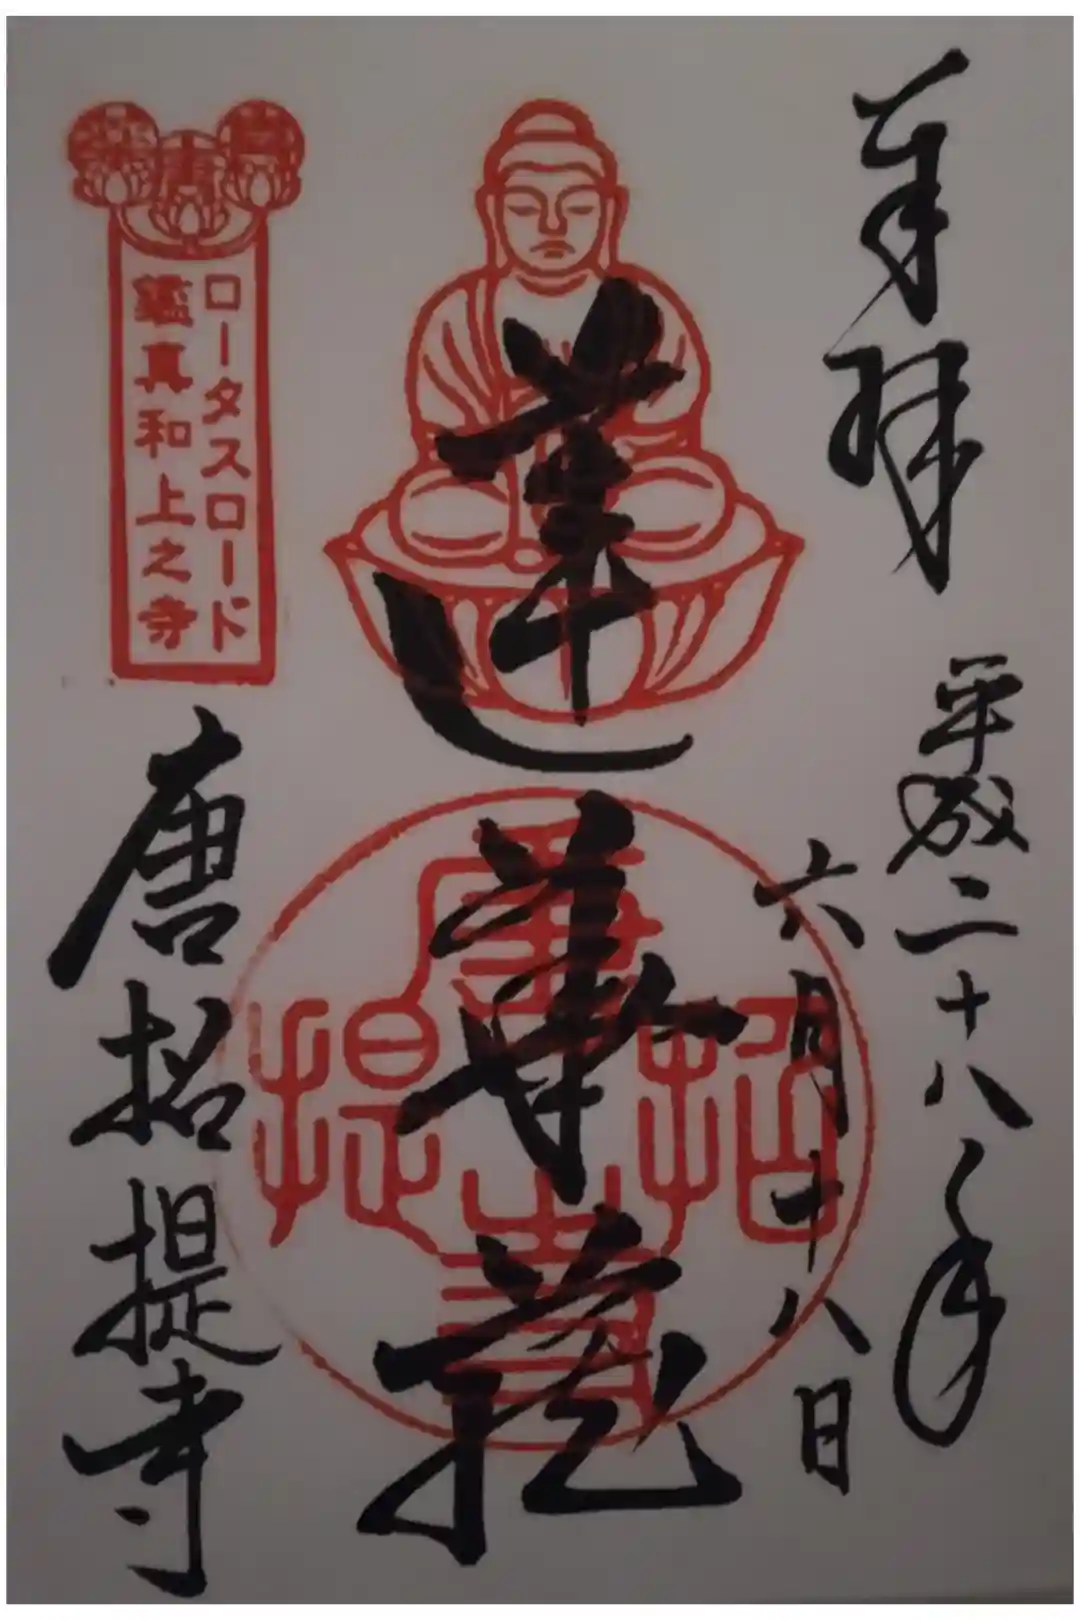 奉拝
平成二十八年
六月十八日
蓮華蔵
ロータスロード
鑑真和上之寺
唐招提寺